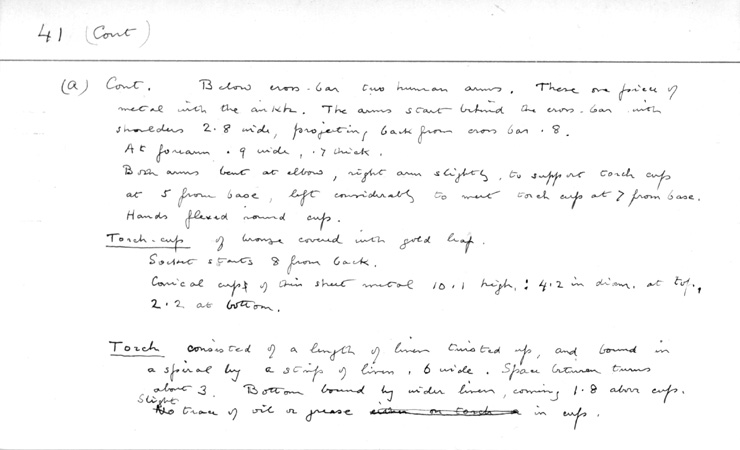 41 (Cont)
(a) Cont. Below cross-bar two human arms. These one piece of
metal with the ankh. The arms start behind the cross-bar with
shoulders 2.8 wide, projecting back from cross bar .8.
At forearm .9 wide, .7 thick.
Both arms bent at elbow, right arm slightly, to support torch cup
at 5 from base, left considerably to meet torch cup at 7 from base.
Hands flexed round cup.
Torch-cup of bronze covered with gold leaf.
Socket starts 8 from back.
Conical cup of thin sheet metal 10.1 high, : 4.2 in diam. at top,
2.2 at bottom.
Torch consisted of a length of linen twisted up, and bound in
a spiral by a strip of linen .6 wide. Space between turns
about 3. Bottom bound by wider linen, coming 1.8 above cup.
Slight
No trace of oil or grease either on torch in cup.